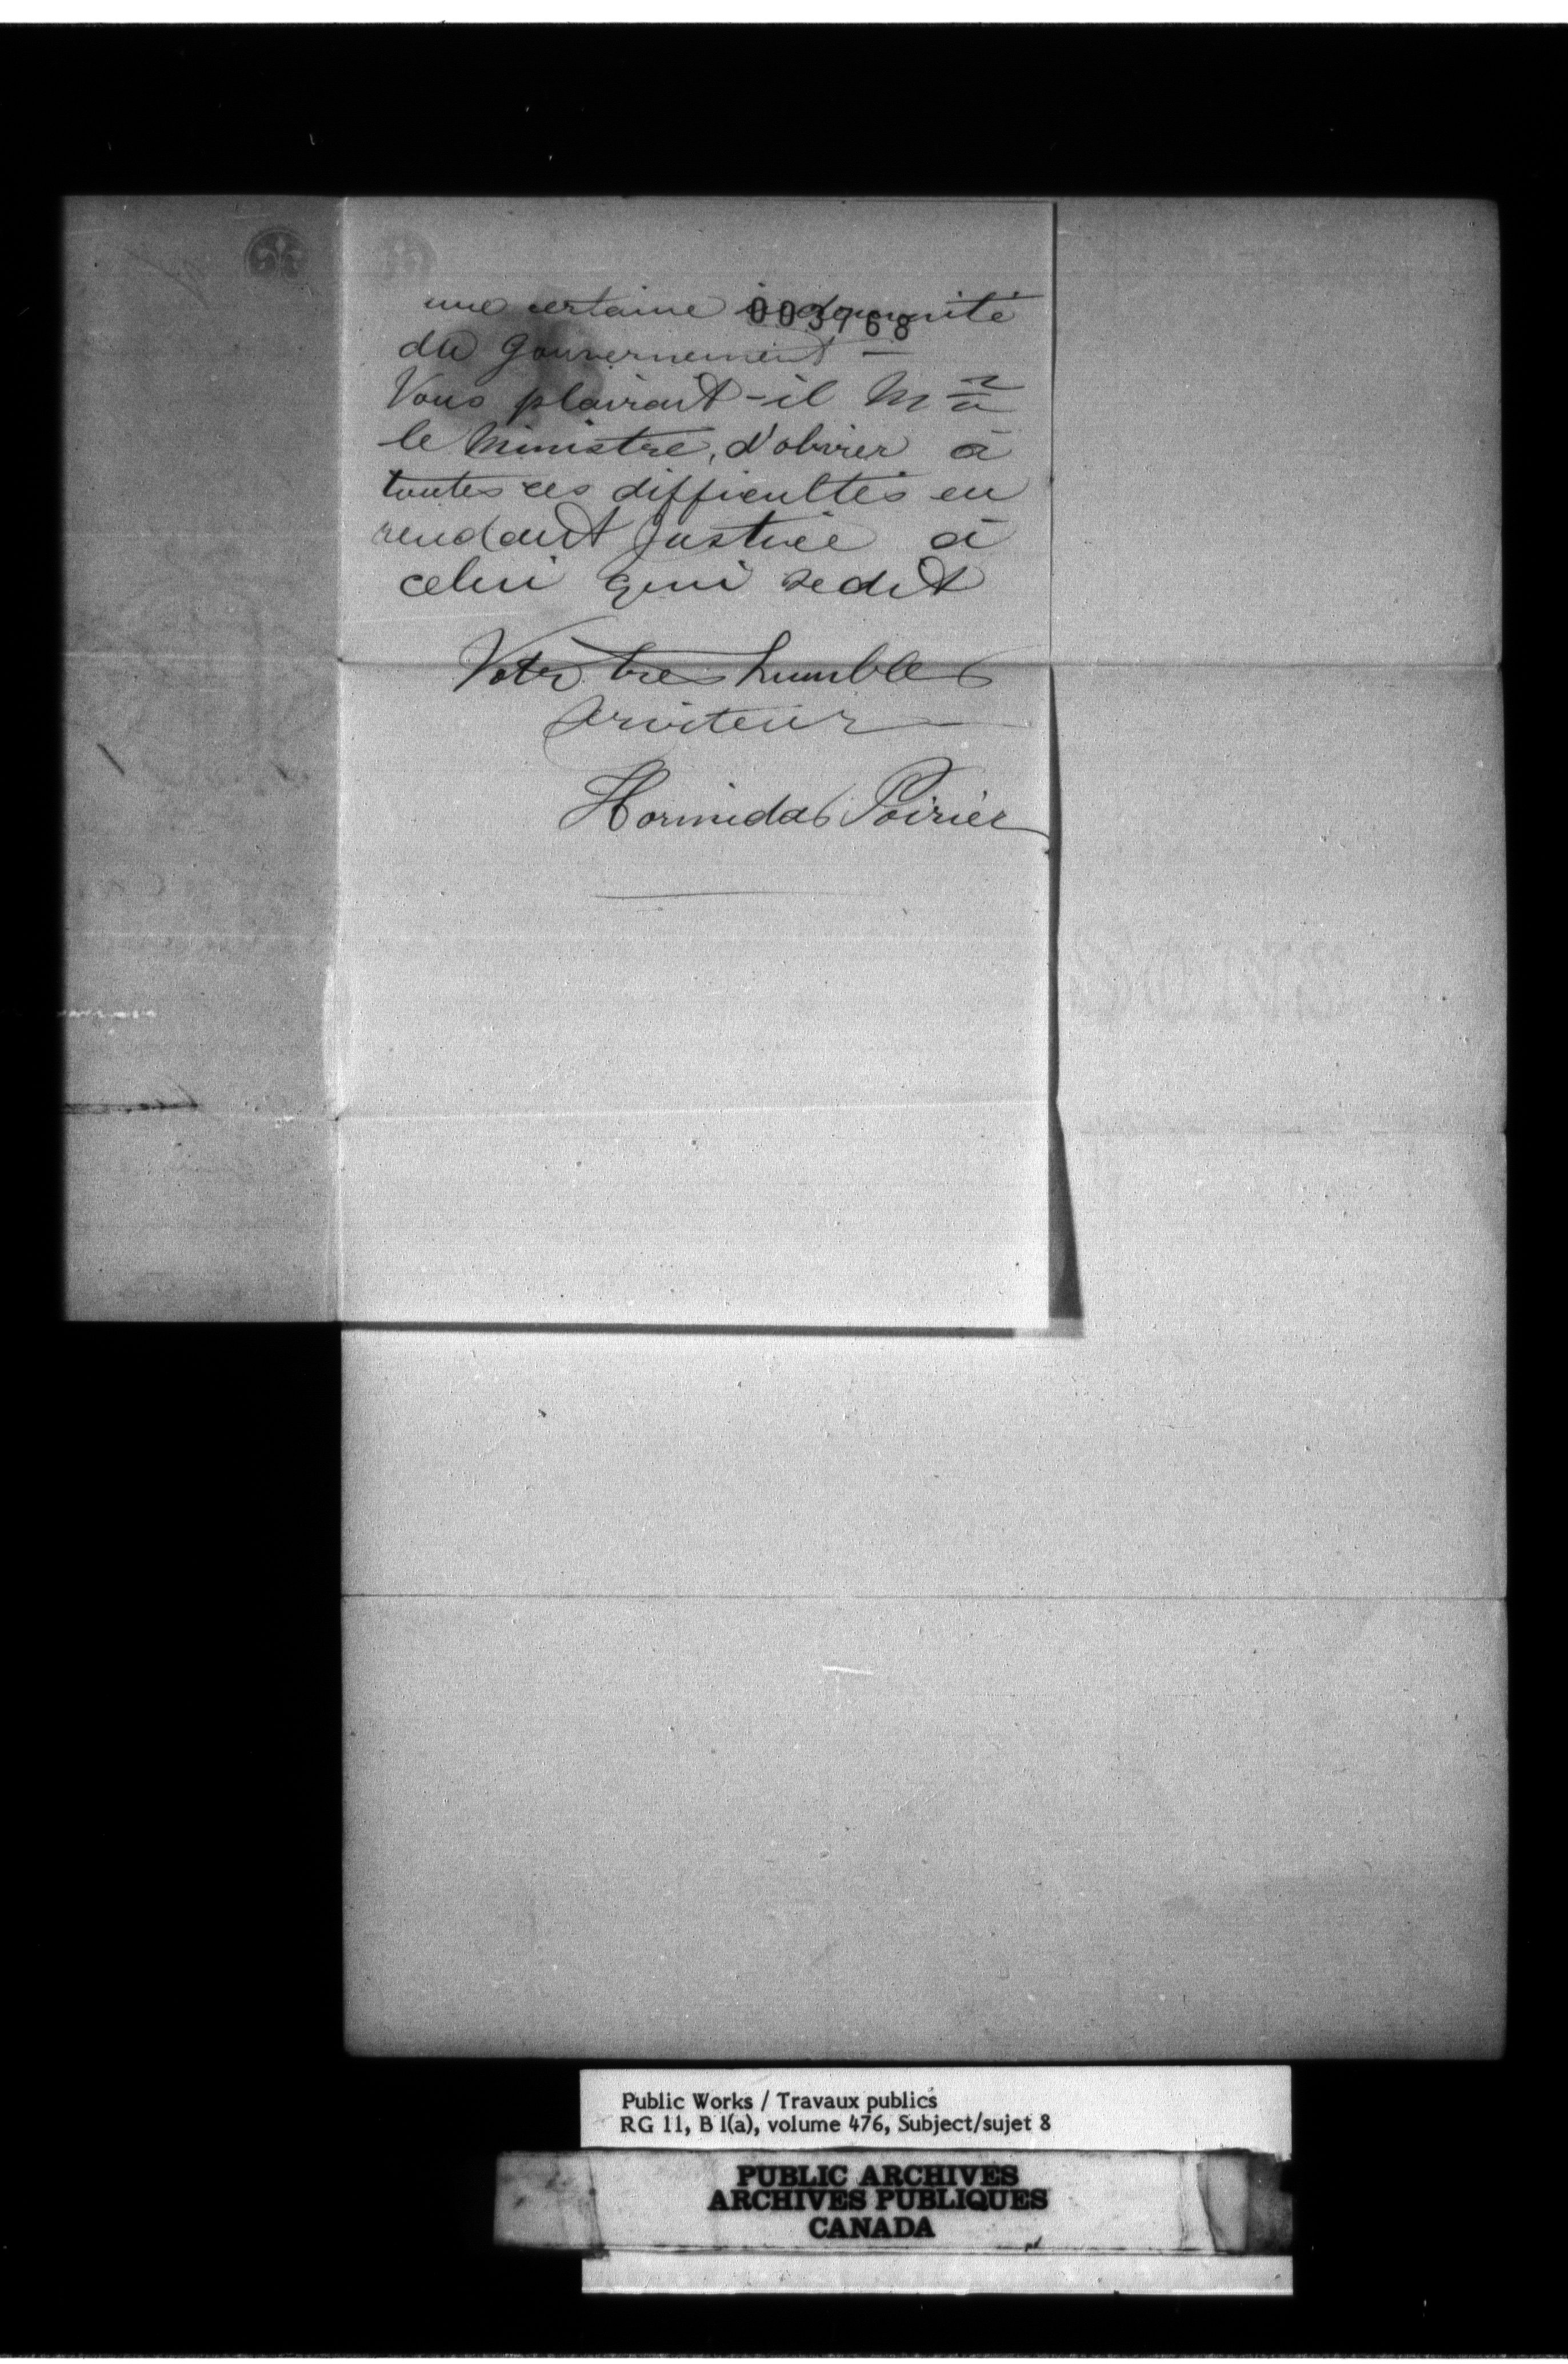 003768
une certaine indemnité
du Gouvernement —
Vous plairait-il Mr
le Ministre, d'obvier à
toutes ces difficultés en
rendant Justice à
celui qui se dit
Votre très humble
Serviteur
Hormidas Poirier
Public Works / Travaux publics
RG 11, B 1(a), volume 476, Subject/sujet 8
PUBLIC ARCHIVES
ARCHIVES PUBLIQUES
CANADA